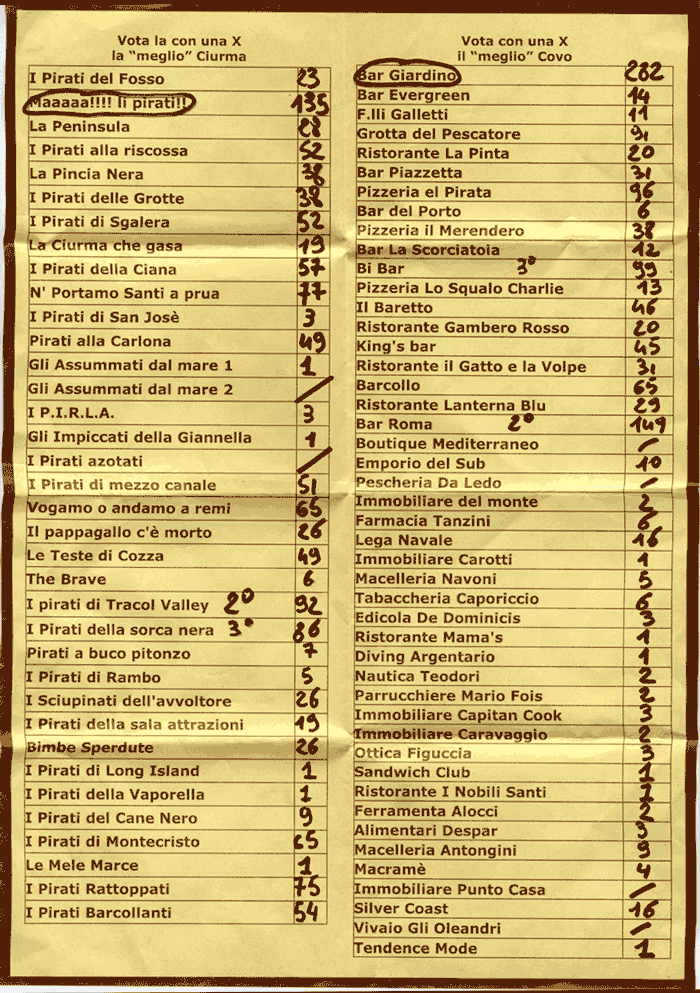 Vota la con una X
la “meglio” Ciurma
I Pirati del Fosso 23
Maaaaa!!!! li pirati!! 135
La Peninsula 28
I Pirati alla riscossa 52
La Pincia Nera 38
I Pirati delle Grotte 38
I Pirati di Sgalera 52
La Ciurma che gasa 19
I Pirati della Ciana 57
N' Portamo Santi a prua 77
I Pirati di San Josè 3
Pirati alla Carlona 49
Gli Assummati dal mare 1 1
Gli Assummati dal mare 2 /
I P.I.R.L.A. 3
Gli Impiccati della Giannella 1
I Pirati azotati /
I Pirati di mezzo canale 51
Vogamo o andamo a remi 65
Il pappagallo c'è morto 26
Le Teste di Cozza 49
The Brave 6
I pirati di Tracol Valley 2° 92
I Pirati della sorca nera 3° 86
Pirati a buco pitonzo 7
I Pirati di Rambo 5
I Sciupinati dell'avvoltore 26
I Pirati della sala attrazioni 19
Bimbe Sperdute 26
I Pirati di Long Island 1
I Pirati della Vaporella 1
I Pirati del Cane Nero 9
I Pirati di Montecristo 65
Le Mele Marce 1
I Pirati Rattoppati 75
I Pirati Barcollanti 54
Vota con una X
il “meglio” Covo
Bar Giardino 282
Bar Evergreen 14
F.lli Galletti 11
Grotta del Pescatore 91
Ristorante La Pinta 20
Bar Piazzetta 31
Pizzeria el Pirata 96
Bar del Porto 6
Pizzeria il Merendero 38
Bar La Scorciatoia 12
Bi Bar 3° 99
Pizzeria Lo Squalo Charlie 13
Il Baretto 46
Ristorante Gambero Rosso 20
King's bar 45
Ristorante il Gatto e la Volpe 31
Barcollo 65
Ristorante Lanterna Blu 29
Bar Roma 2° 149
Boutique Mediterraneo /
Emporio del Sub 10
Pescheria Da Ledo /
Immobiliare del monte 2
Farmacia Tanzini 6
Lega Navale 16
Immobiliare Carotti 1
Macelleria Navoni 5
Tabaccheria Caporiccio 6
Edicola De Dominicis 3
Ristorante Mama's 1
Diving Argentario 1
Nautica Teodori 2
Parrucchiere Mario Fois 2
Immobiliare Capitan Cook 3
Immobiliare Caravaggio 2
Ottica Figuccia 3
Sandwich Club 1
Ristorante I Nobili Santi
Ferramenta Alocci 2
Alimentari Despar 3
Macelleria Antongini 3
Macramè 4
Immobiliare Punto Casa /
Silver Coast 16
Vivaio Gli Oleandri /
Tendence Mode 1